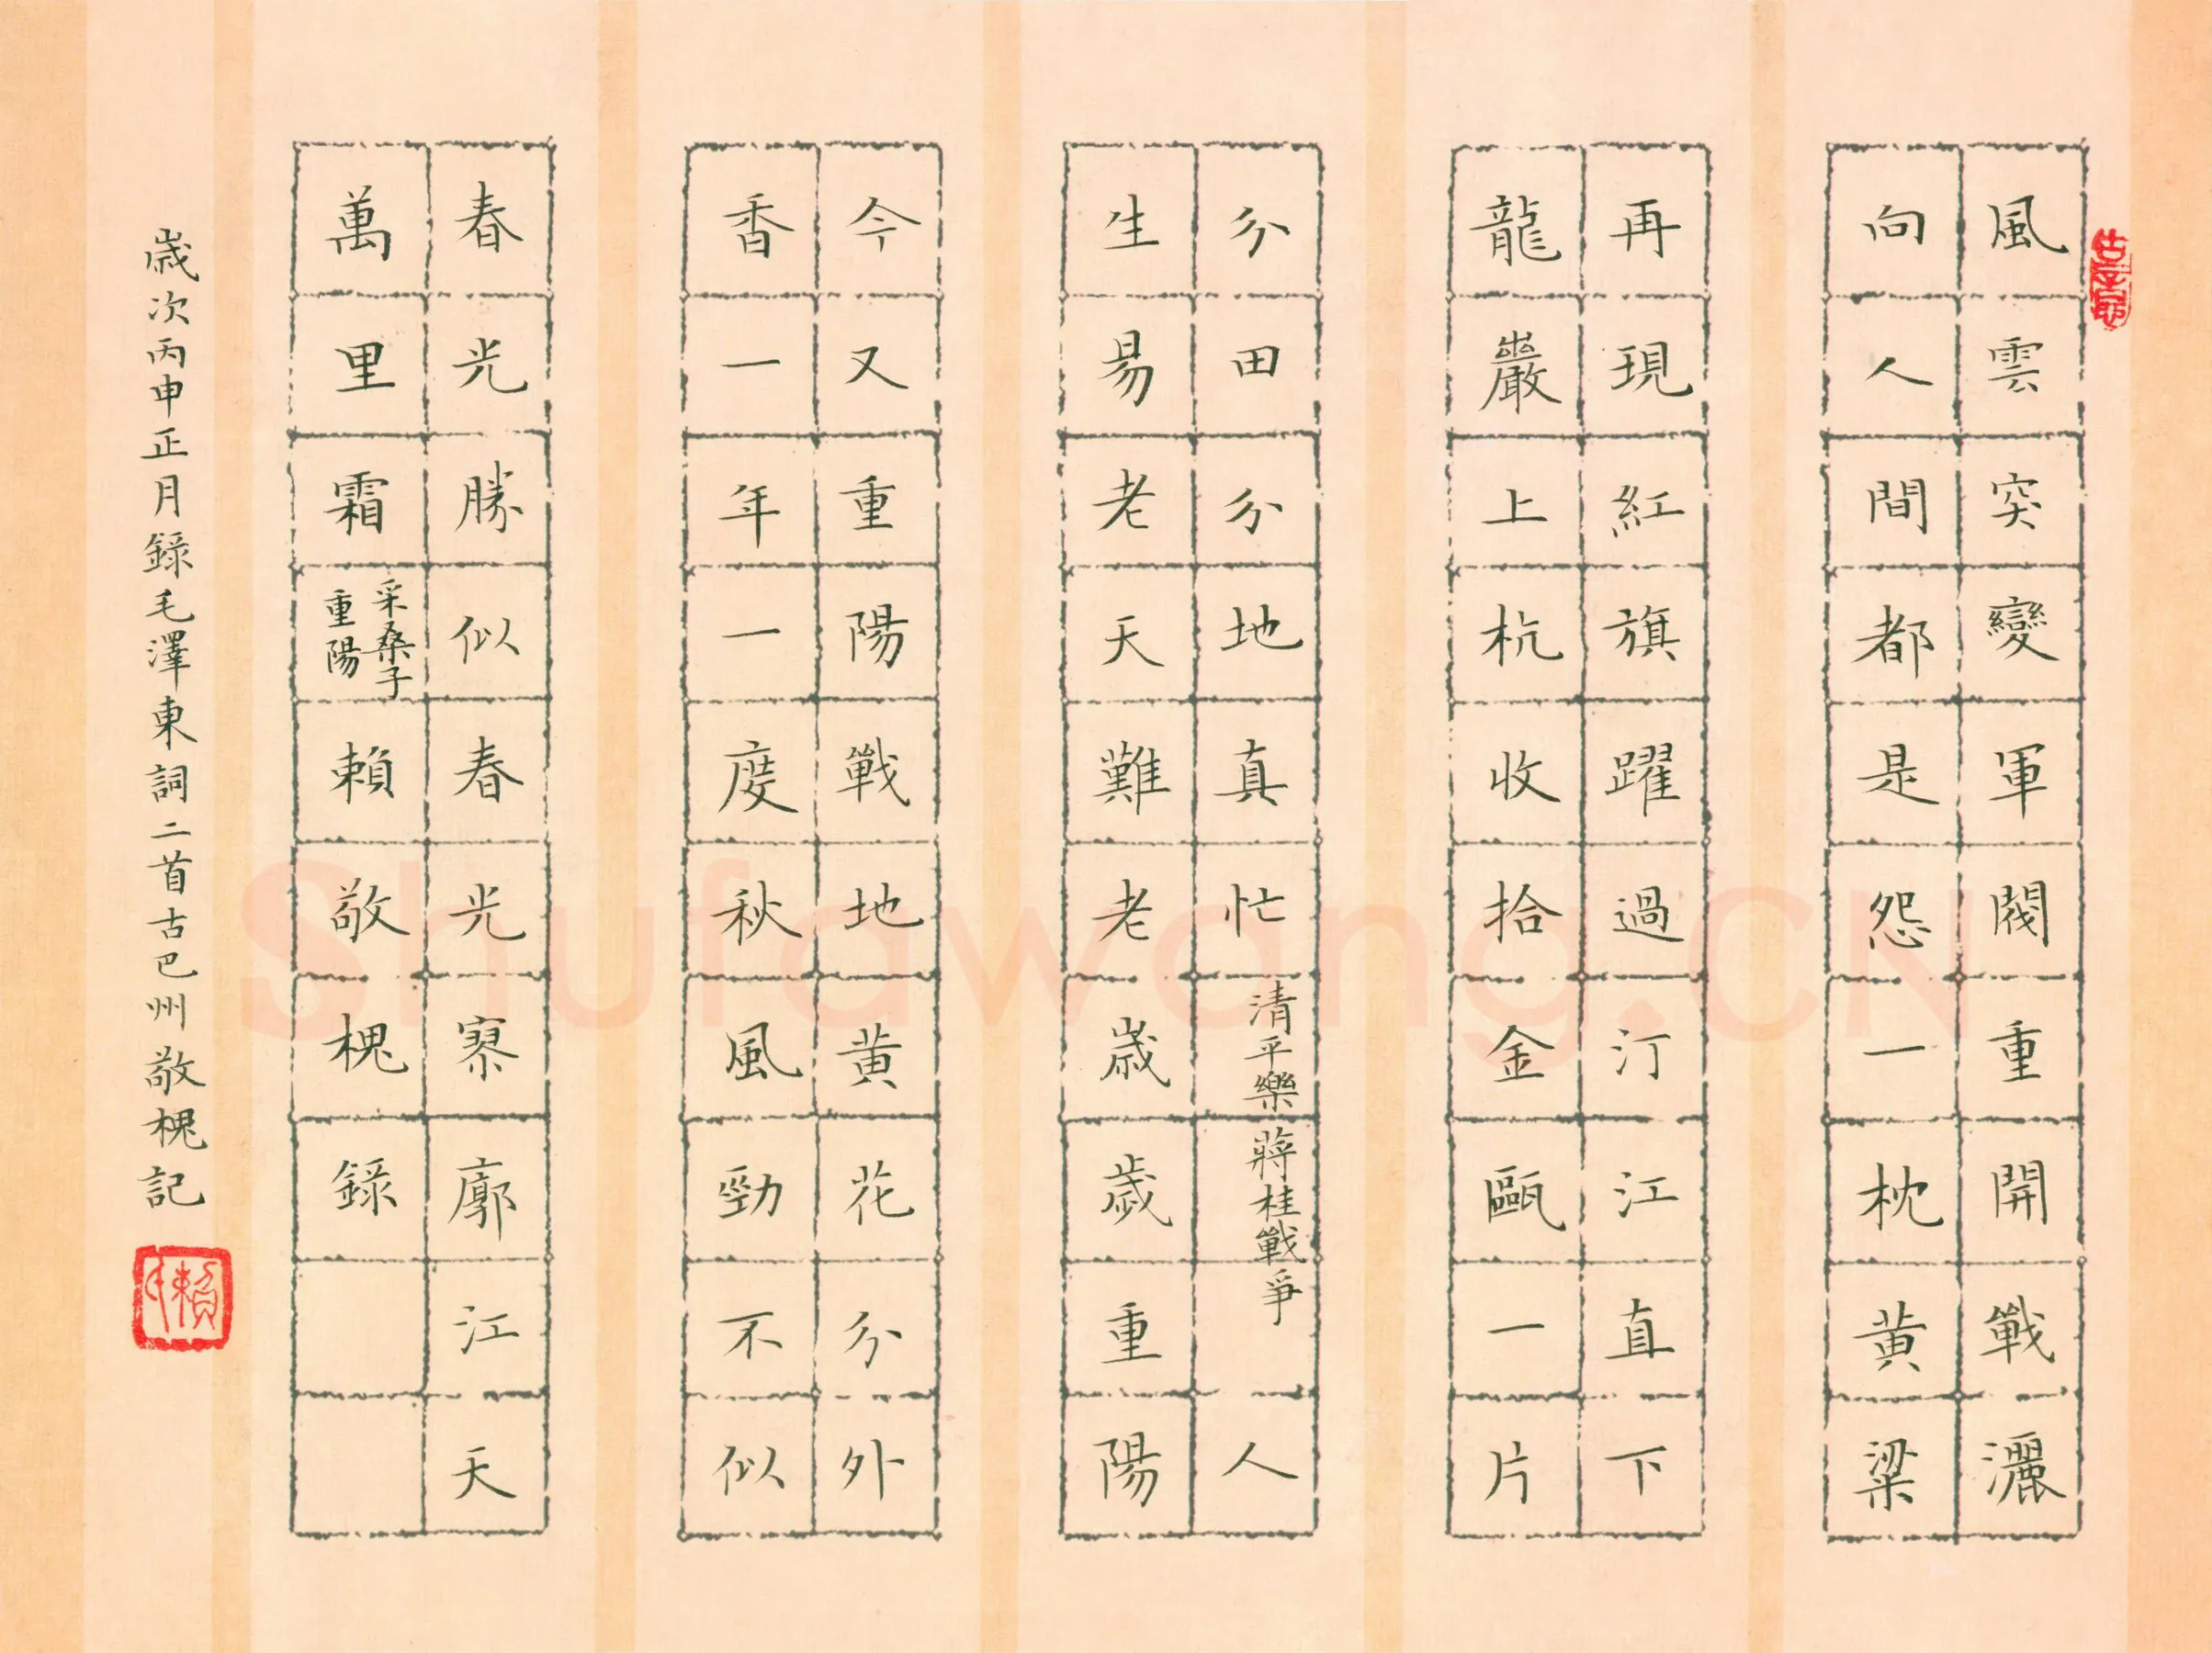 風雲突變軍閥重開戰灑
向人間都是怨一枕黃粱
再現紅旗躍過汀江直下
龍巖上杭收拾金甌一片
分田分地真忙清平樂蔣桂戰爭人
生易老天難老歲歲重陽
今又重陽戰地黃花分外
香一年一度秋風勁不似
春光勝似春光寥廓江天
萬里霜采桑子重陽賴敬槐錄
歲次丙申正月錄毛澤東詞二首古巴州敬槐記
Shufawang.CN